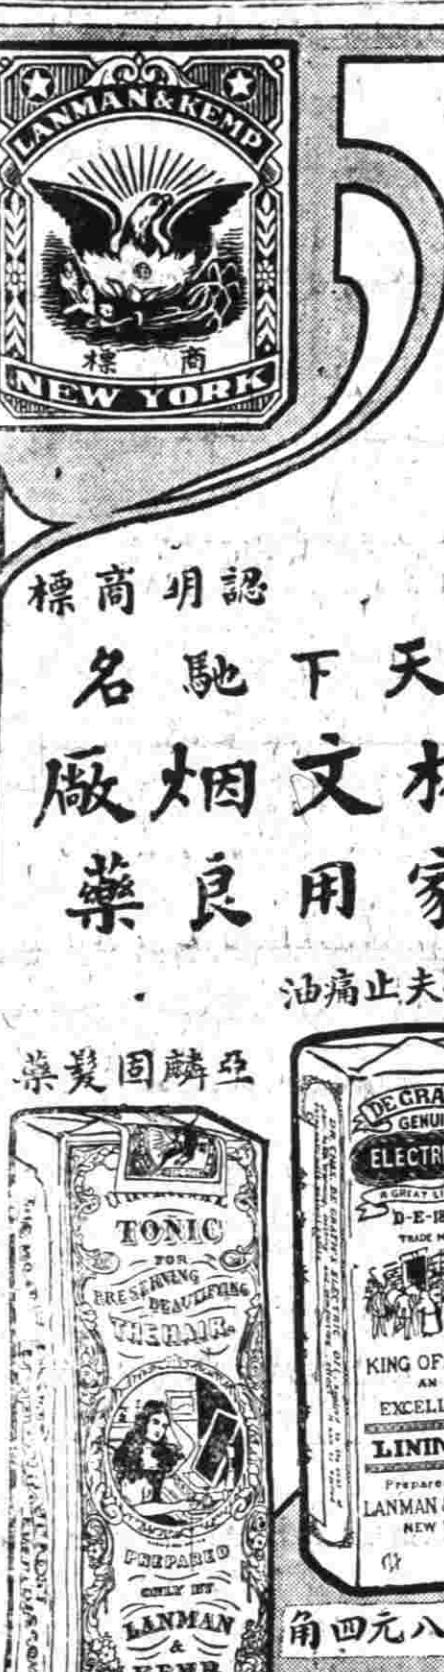 LANMAN & KEMP
商標
NEW YORK
認明商標
天下馳名
文烟廠
家用良藥
夫止痛油
亞麟固髮藥
TONIC
FOR
PRESERVING
BEAUTIFYING
THE HAIR
PREPARED
ONLY BY
LANMAN
&
KEMP
DE GRA
GENUI
ELECTR
A GREAT
D-E-
TRADE
KING OF
AN
EXCELL
LINI
Prepare
LANMAN
NEW
八元四角